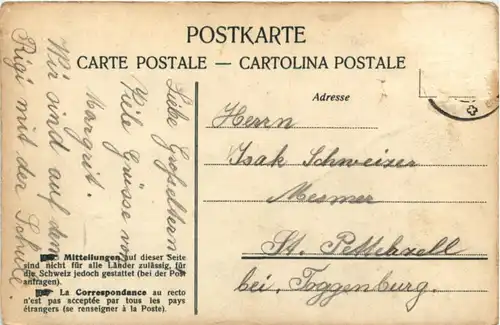 POSTKARTE
CARTE POSTALE — CARTOLINA POSTALE
Adresse
Herrn
Isak Schweizer
Mesmer
St. Pettehzell
bei, Toggenburg.
Liebe Großeltern
Viele Grüsse von
Margrit.
Wir sind auf dem
Rigi mit der Schule.
Mitteilungen auf dieser Seite
sind nicht für alle Länder zulässig, für
die Schweiz jedoch gestattet (bei der Post
anfragen).
La Correspondance au recto
n'est pas acceptée par tous les pays
étrangers (se renseigner à la Poste).